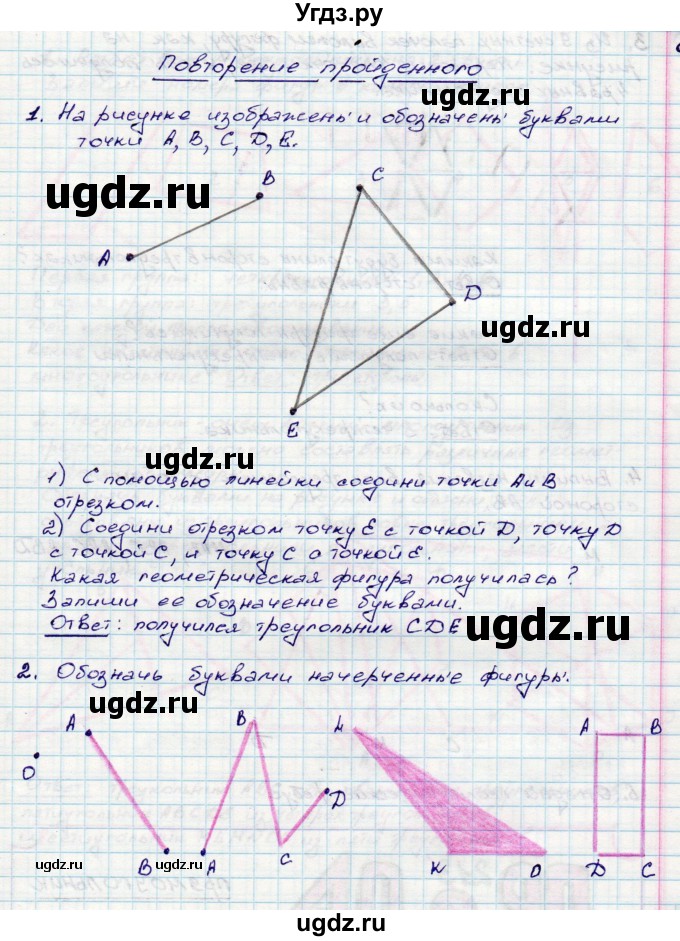 Угдз.ру
Повторение пройденного
ugdz.ru
1. На рисунке изображены и обозначены буквами
точки A, B, C, D, E.
ugdz.ru
B
C
A
D
ugdz.ru
E
ugdz.ru
1) С помощью линейки соедини точки A и B
отрезком.
2) Соедини отрезком точку E с точкой D, точку D
с точкой C, и точку C с точкой E.
Какая геометрическая фигура получилась?
Запиши ее обозначение буквами.
Ответ: получился треугольник CDE
ugdz.ru
2. Обозначь буквами начерченные фигуры.
ugdz.ru
A
B
A
B
O
D
B
A
C
K
O
D
C
ugdz.ru
ugdz.ru
ugdz.ru
ugdz.ru